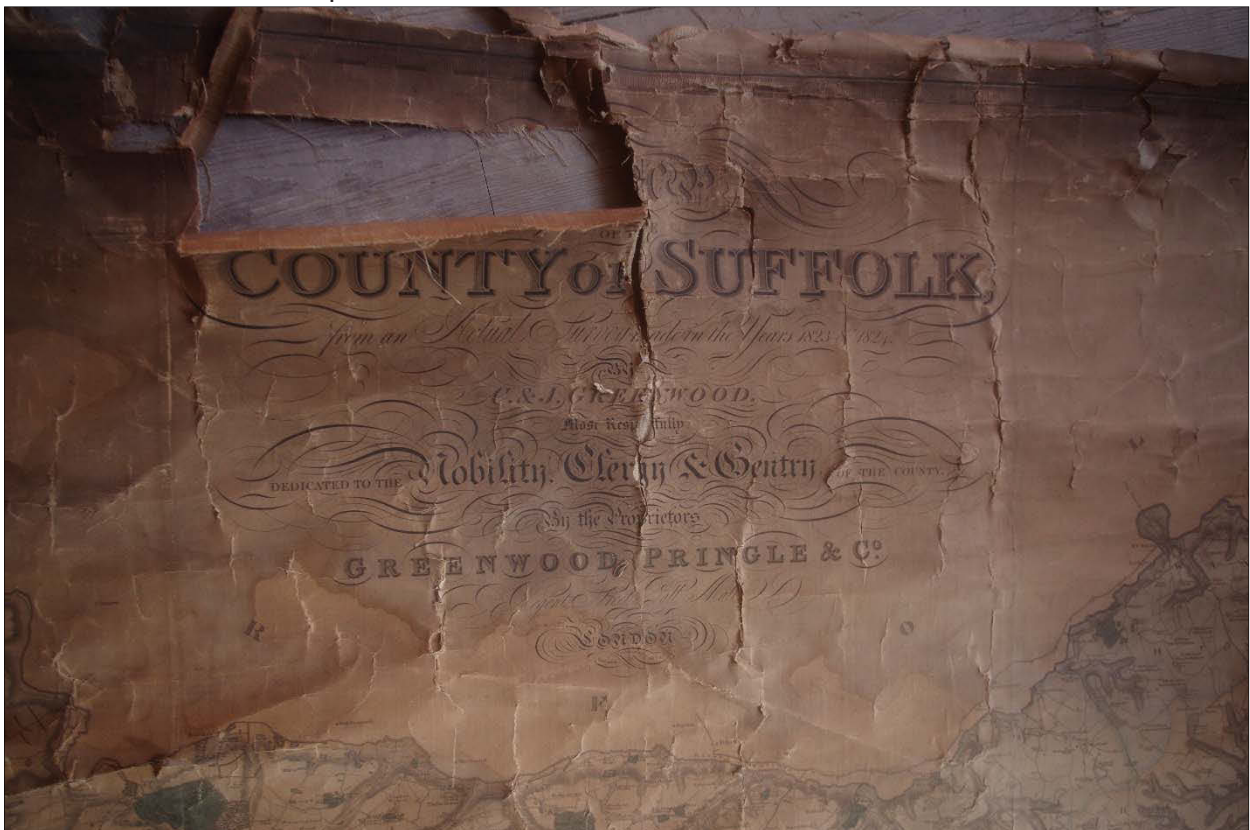 COUNTY OF SUFFOLK,
from an Actual Survey made in the Years 1823 & 1824.
By
C. & J. GREENWOOD.
Most Respectfully
DEDICATED TO THE Nobility, Clergy & Gentry OF THE COUNTY.
By the Proprietors
GREENWOOD, PRINGLE & Co.
LONDON
R
O
F